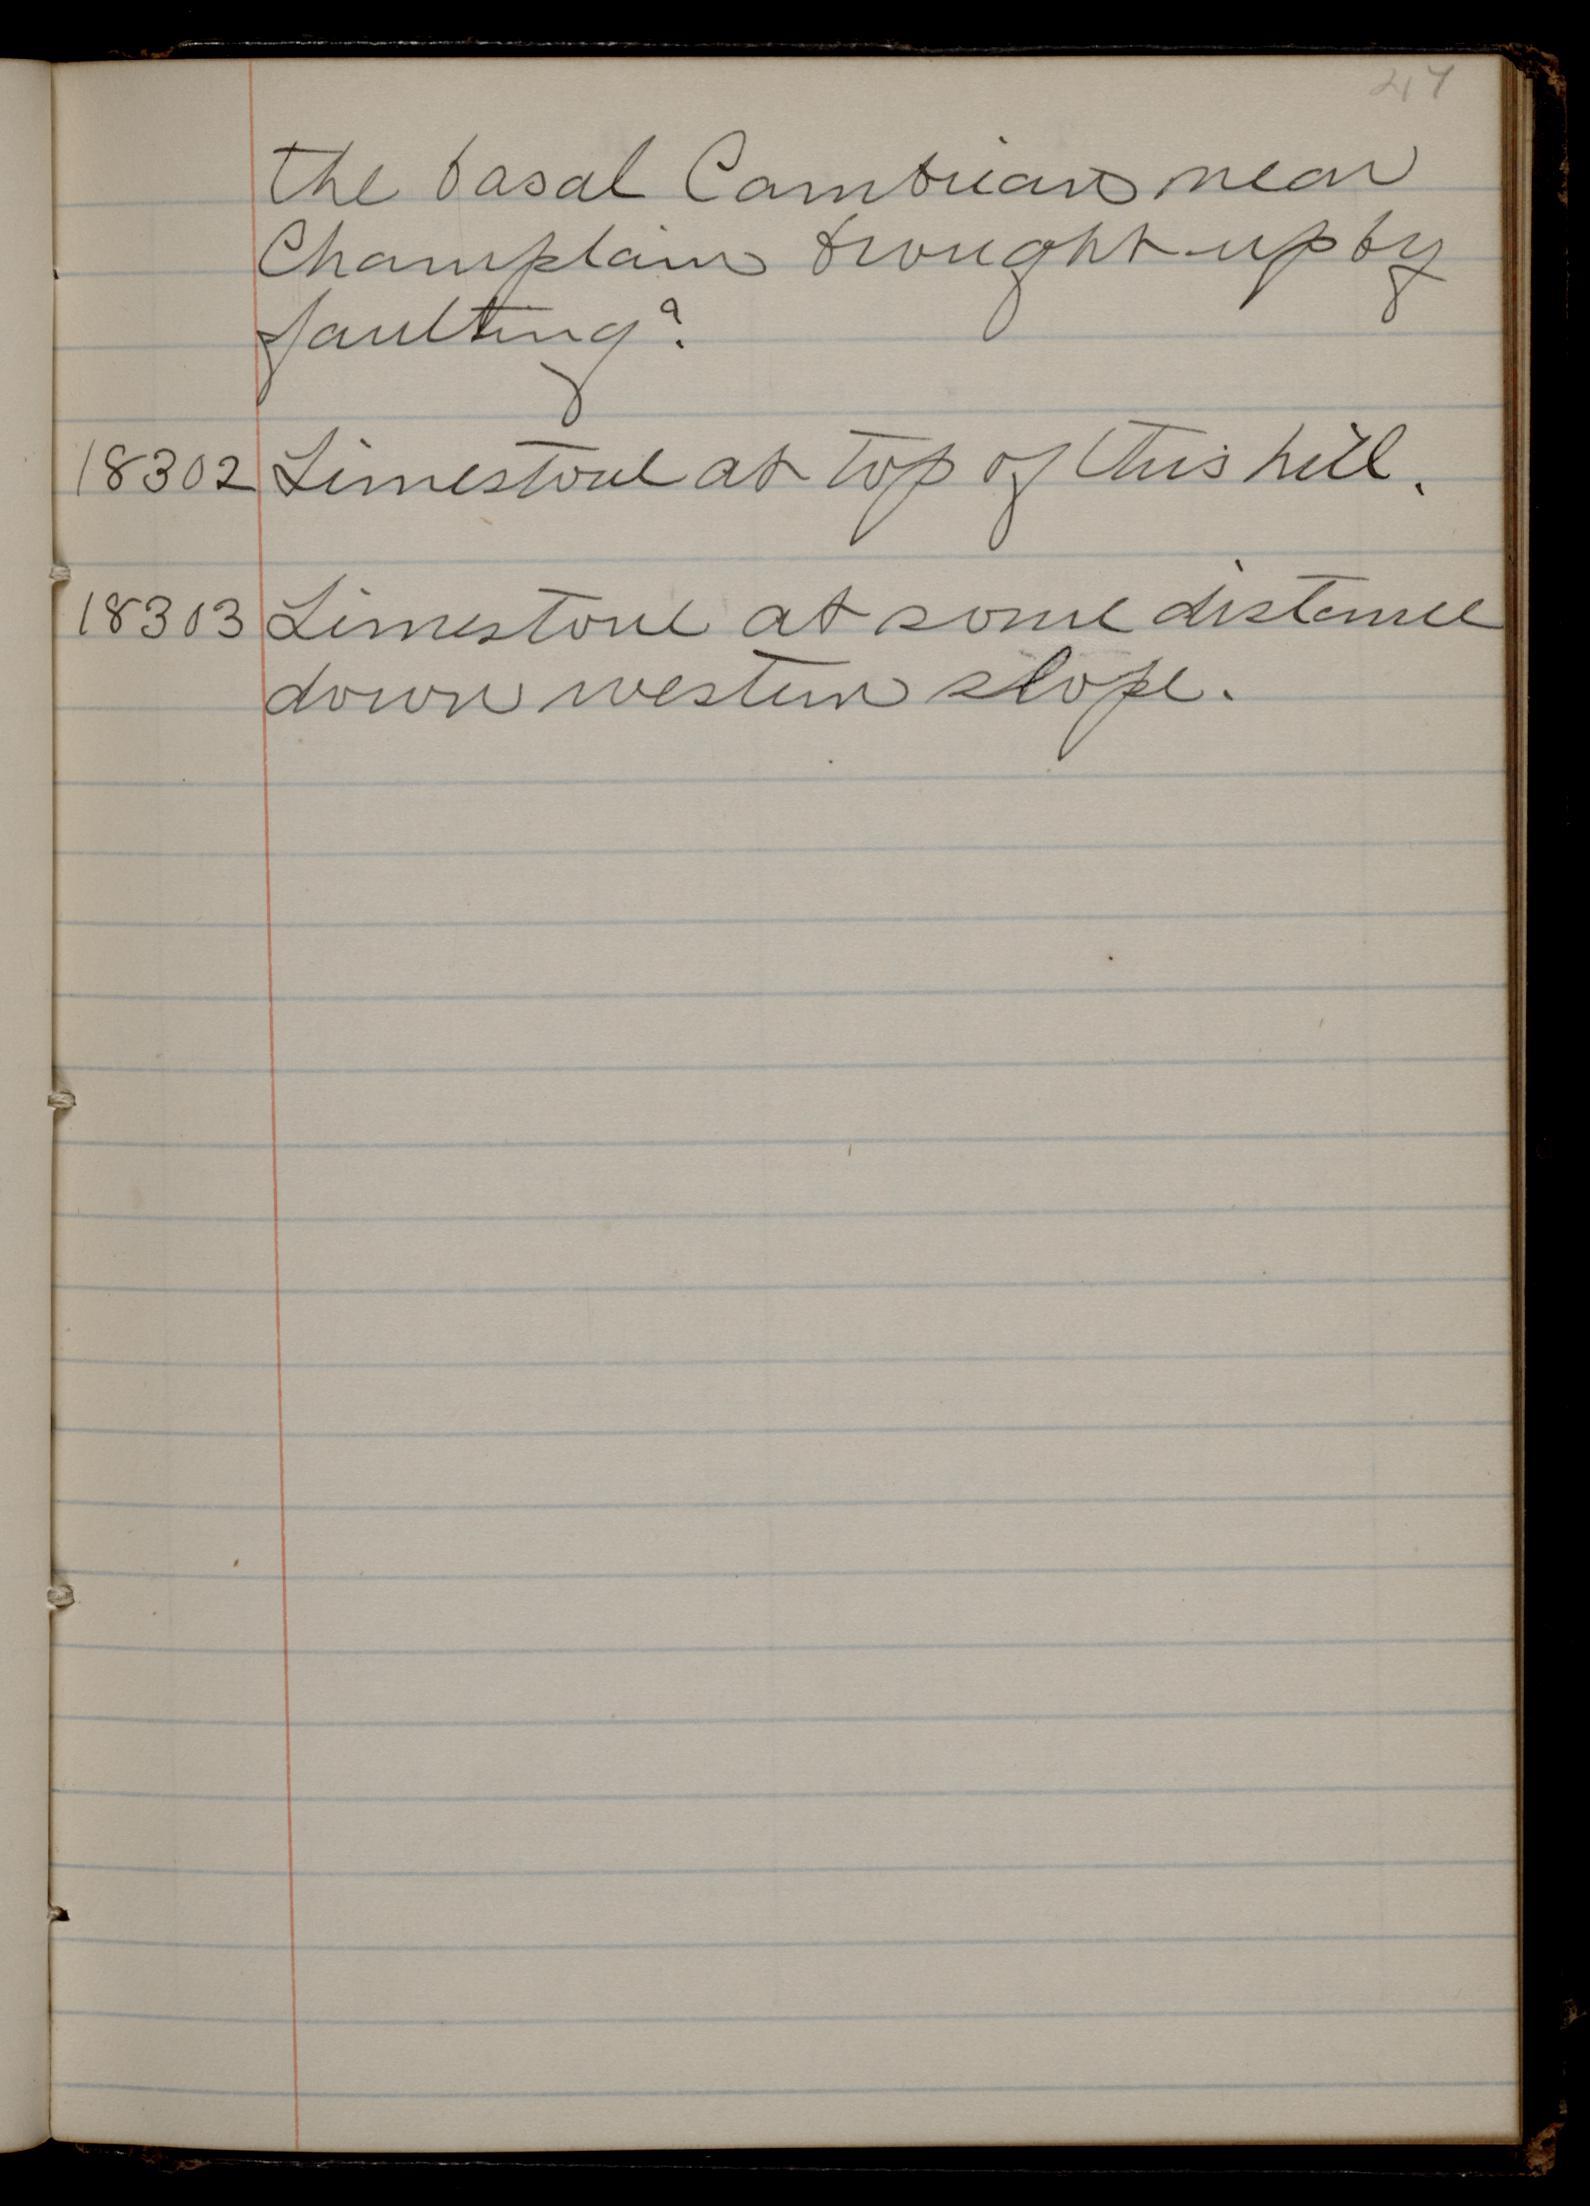 47
the basal Cambrian near
Champlain brought up by
faulting?
18302 Limestone at top of this hill.
18303 Limestone at some distance
down western slope.